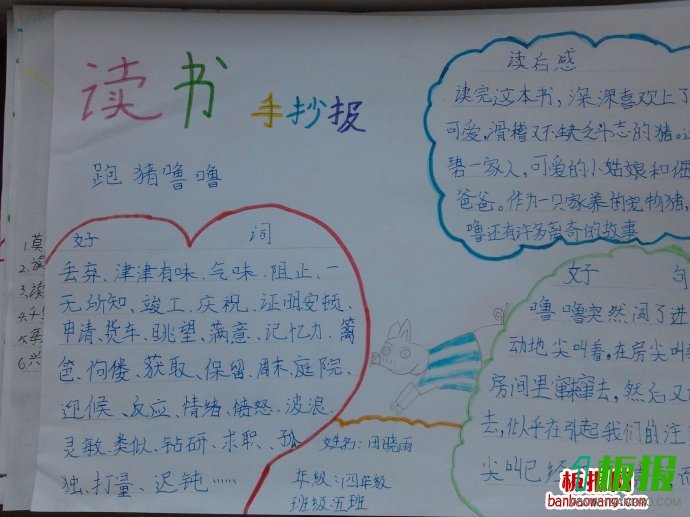 读书
手抄报
跑猪噜噜
好 词
丢弃、津津有味、气味、阻止、一
无所知、竣工、庆祝、证明安顿、
申请、货车、眺望、满意、记忆力、篱
笆、佝偻、获取、保留、周末、庭院、
迎候、反应、情绪、愤怒、波浪、
灵敏、类似、钻研、求职、孤
独、打量、迟钝……
读后感
读完这本书,深深喜欢上了
可爱,滑稽又不缺乏斗志的猪。
碧一家人,可爱的小姑娘和倔
爸爸。作为一只家养的宠物猪,
噜还有许多离奇的故事
好 句
噜噜突然闯了进
动地尖叫着。在房尖叫
房间里窜窜去,然后又
去,似乎在引起我们的注
尖叫已经
姓名:田晓雨
年级:四年级
班级:五班
1.莫
2.
3.读
4.
5.
6.兴
板报网
banbaowang.com
板报